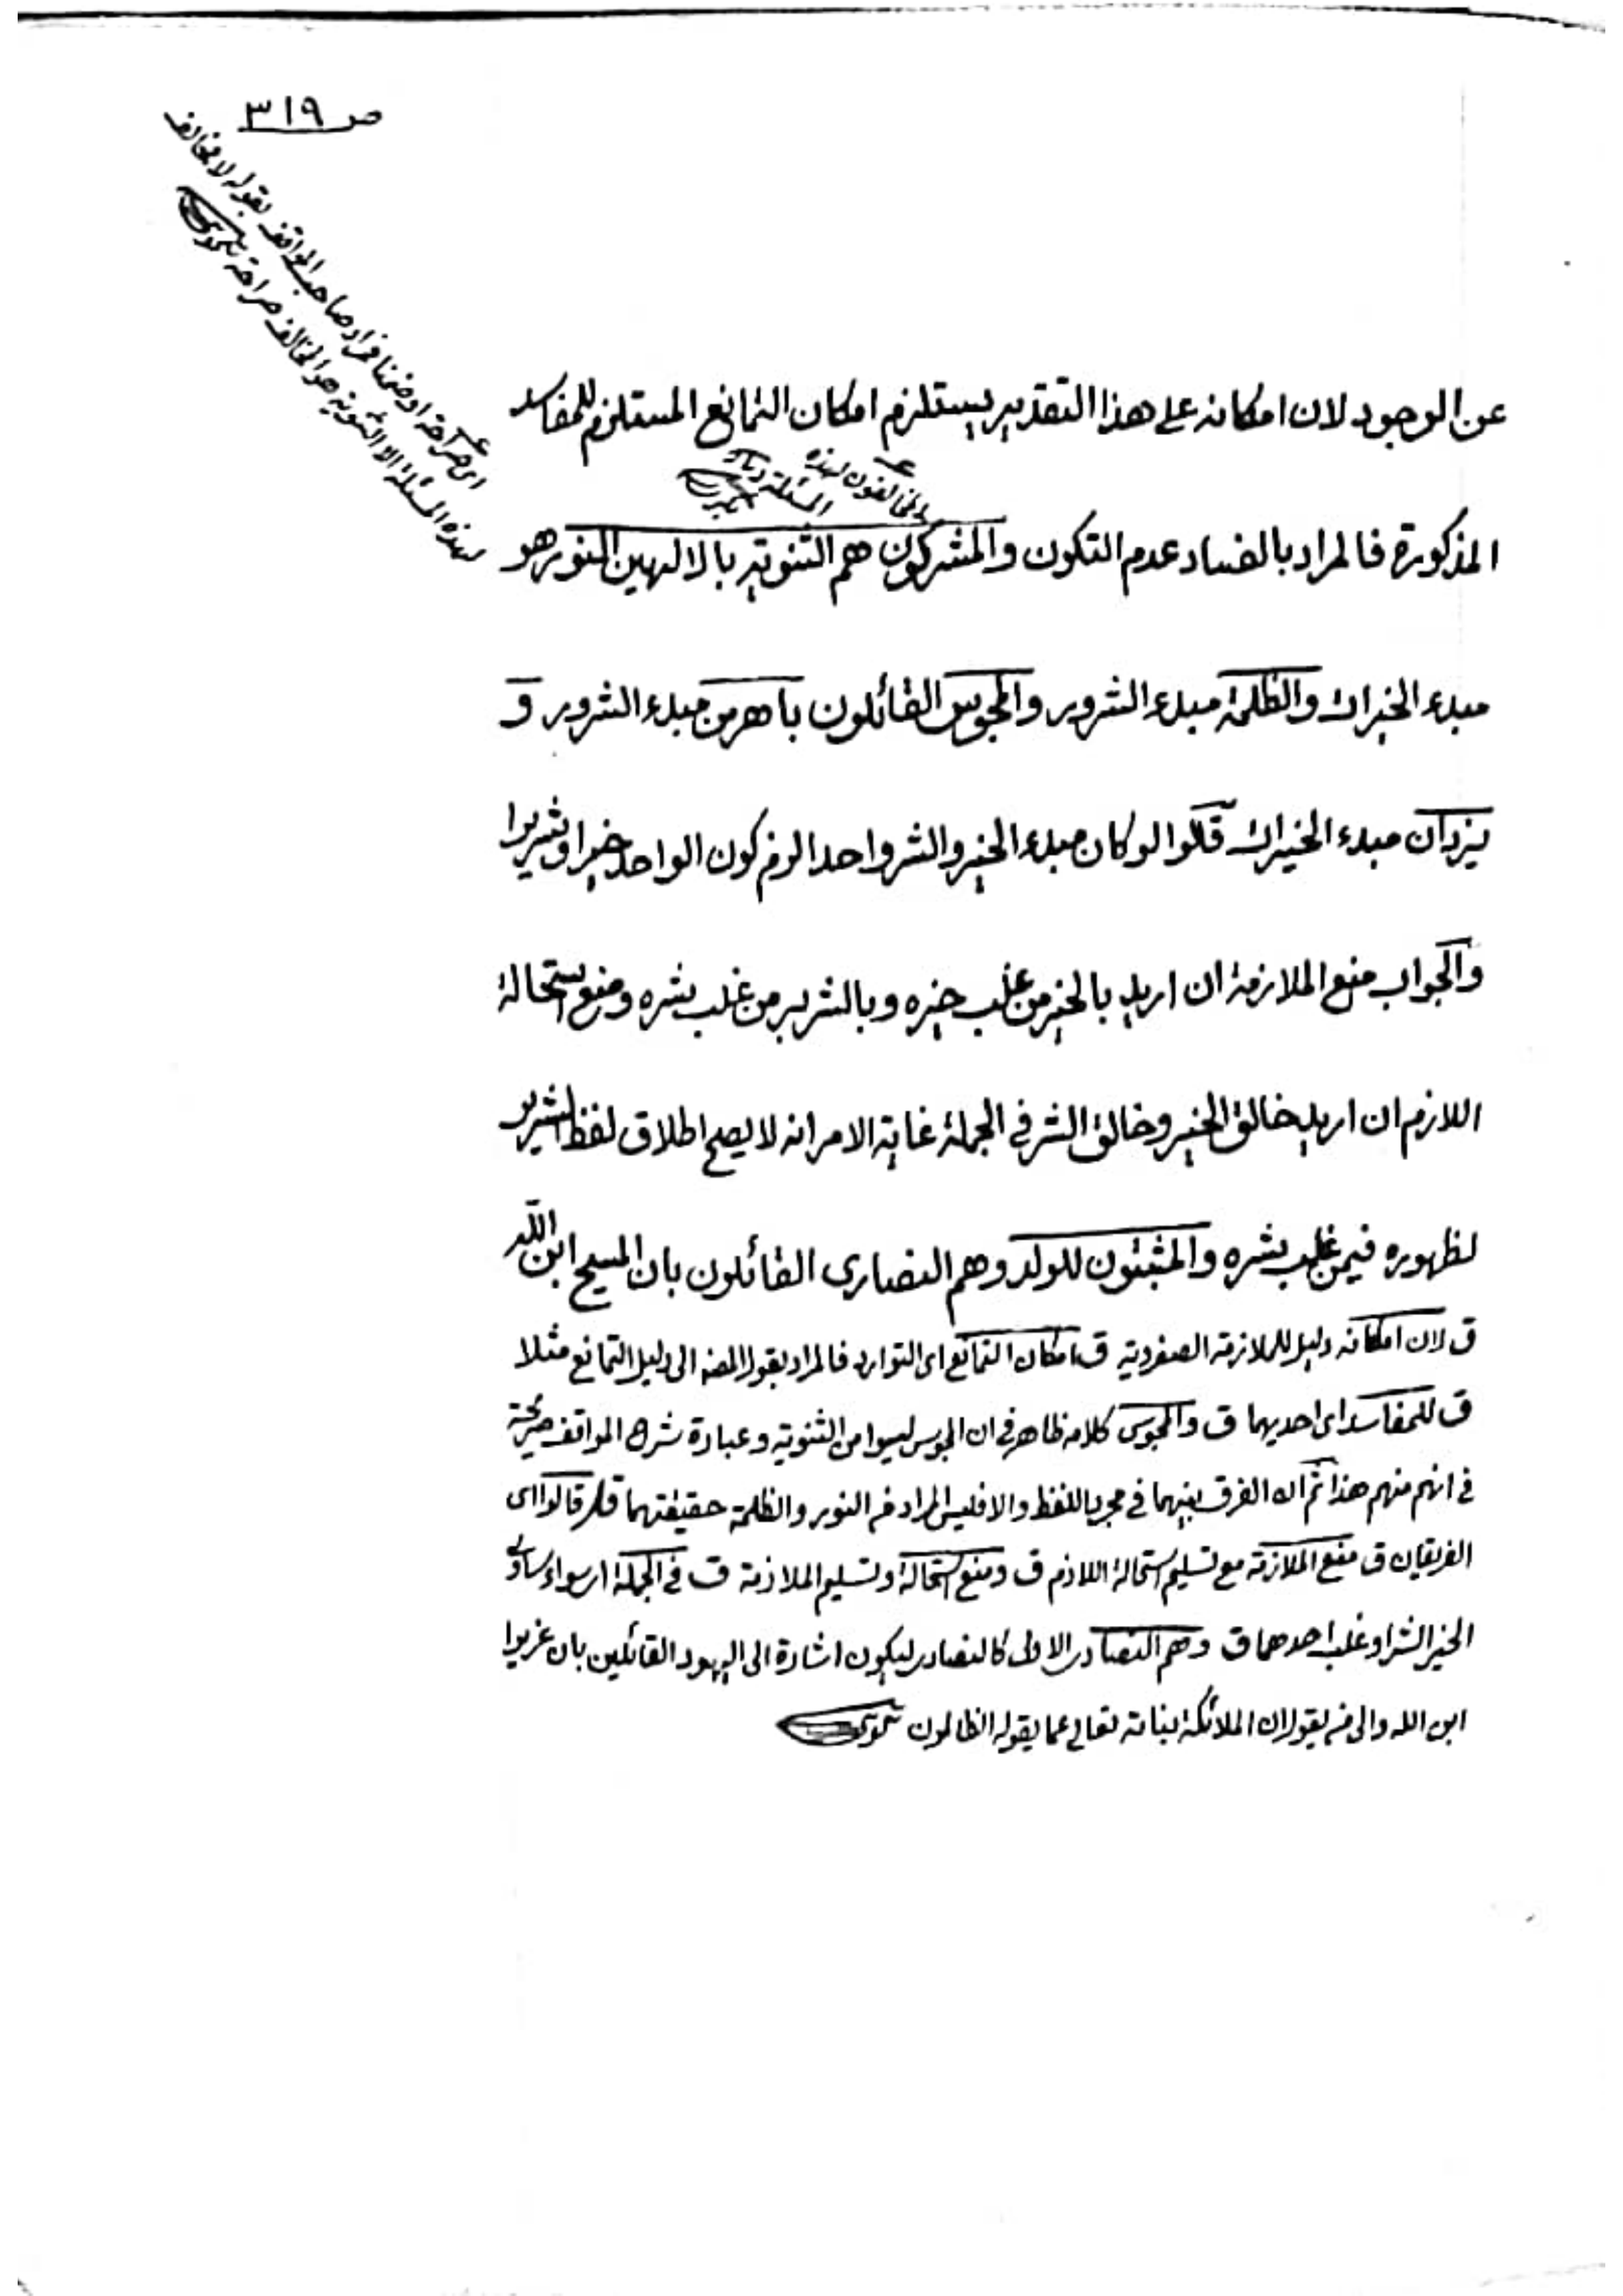 ص ٣١٩
اى صراحة او ضمنا فمراد صاحب المواقف بقوله لا مخالف
لهذه المسئلة الا الثنوية هو المخالف صراحة
عن الوجود لان امكانه على هذا التقدير يستلزم امكان التمانع المستلزم للمفاسد
والمخالفون لهذه
المسئلة
المذكورة فالمراد بالفساد عدم التكون والمشركون هم الثنوية بالالهين النور هو
مبدء الخيرات والظلمة مبدء الشرور والمجوس القائلون باهرمن مبدء الشرور و
يزدان مبدء الخيرات قالوا لو كان مبدء الخير والشر واحدا لزم كون الواحد خيرا وشريرا
والجواب منع الملازمة ان اريد بالخير من غلب خيره وبالشرير من غلب شره ومنع استحالة
اللازم ان اريد خالق الخير وخالق الشر في الجملة غاية الامر انه لا يصح اطلاق لفظ الشرير
لظهوره فيمن غلب شره والمثبتون للولد وهم النصارى القائلون بان المسيح ابن الله
ق لان امكانه دليل للملازمة الصغروية ق امكان التمانع اى التوارد فالمراد بقول المصنف الى دليل التمانع مثلا
ق للمفاسد اى احديهما ق والمجوس كلامه ظاهر في ان المجوس ليسوا من الثنوية وعبارة شرح المواقف صريحة
في انهم منهم هذا ثم ان الفرق بينهما في مجرد اللفظ والا فليس المراد من النور والظلمة حقيقتهما قوله قالوا اى
الفريقان ق منع الملازمة مع تسليم استحالة اللازم ق ومنع استحالة وتسليم الملازمة ق في الجملة اى سواء ساوى
الخير الشر او غلب احدهما ق وهم النصارى الاولى كالنصارى ليكون اشارة الى اليهود القائلين بان عزيرا
ابن الله والى من يقول ان الملائكة بناته تعالى عما يقوله الظالمون